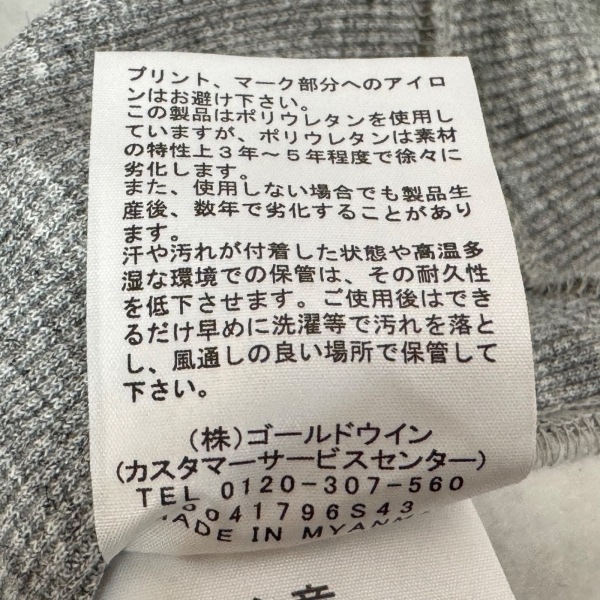 プリント、マーク部分へのアイロ
ンはお避け下さい。
この製品はポリウレタンを使用し
ていますが、ポリウレタンは素材
の特性上3年~5年程度で徐々に
劣化します。
また、使用しない場合でも製品生
産後、数年で劣化することがあり
ます。
汗や汚れが付着した状態や高温多
湿な環境での保管は、その耐久性
を低下させます。ご使用後はでき
るだけ早めに洗濯等で汚れを落と
し、風通しの良い場所で保管して
下さい。
(株)ゴールドウイン
(カスタマーサービスセンター)
TEL 0120-307-560
0041796S43
MADE IN
意